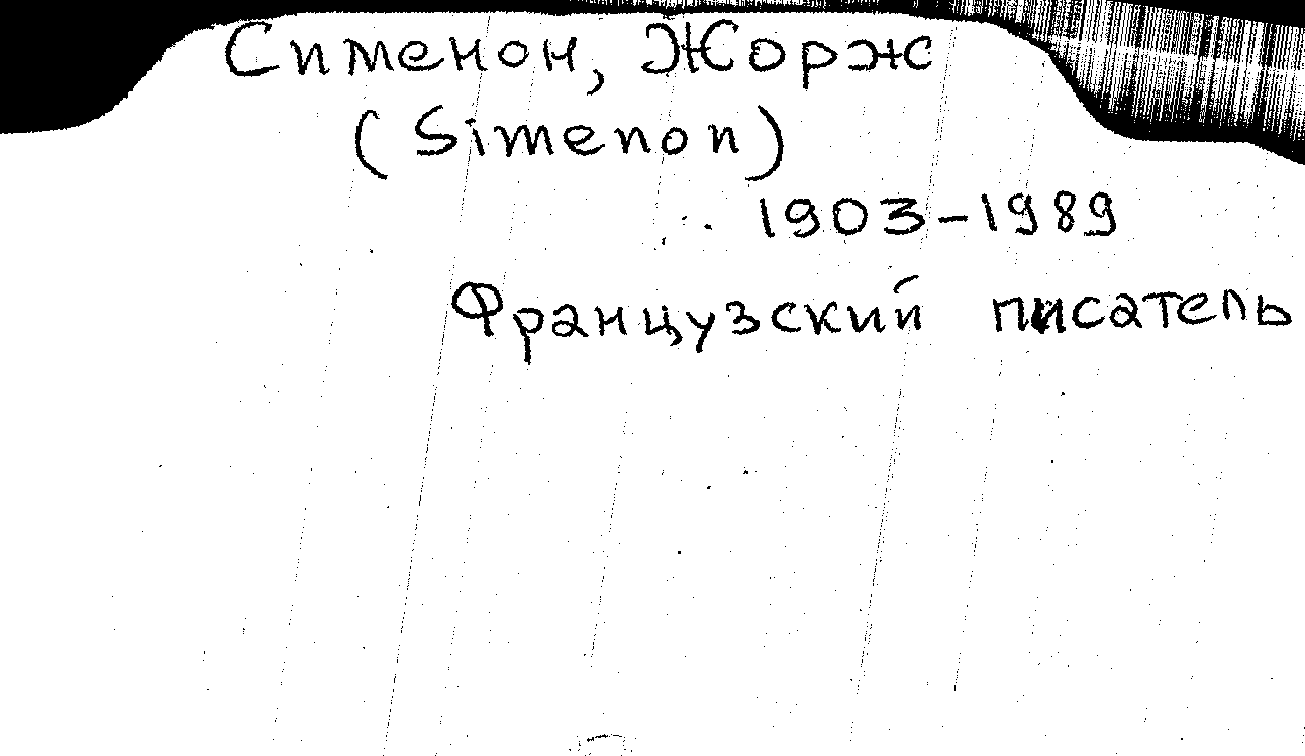 Сименон, Жорж
(Simenon)
1903-1989
Французский писатель